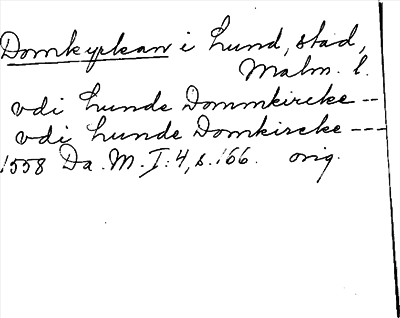 Domkyrkan i Lund, stad,
Malm. l.
vdi Lunde Dommkircke --
vdi Lunde Domkircke ---
1558 Da. M. I:4, s. 166. orig.